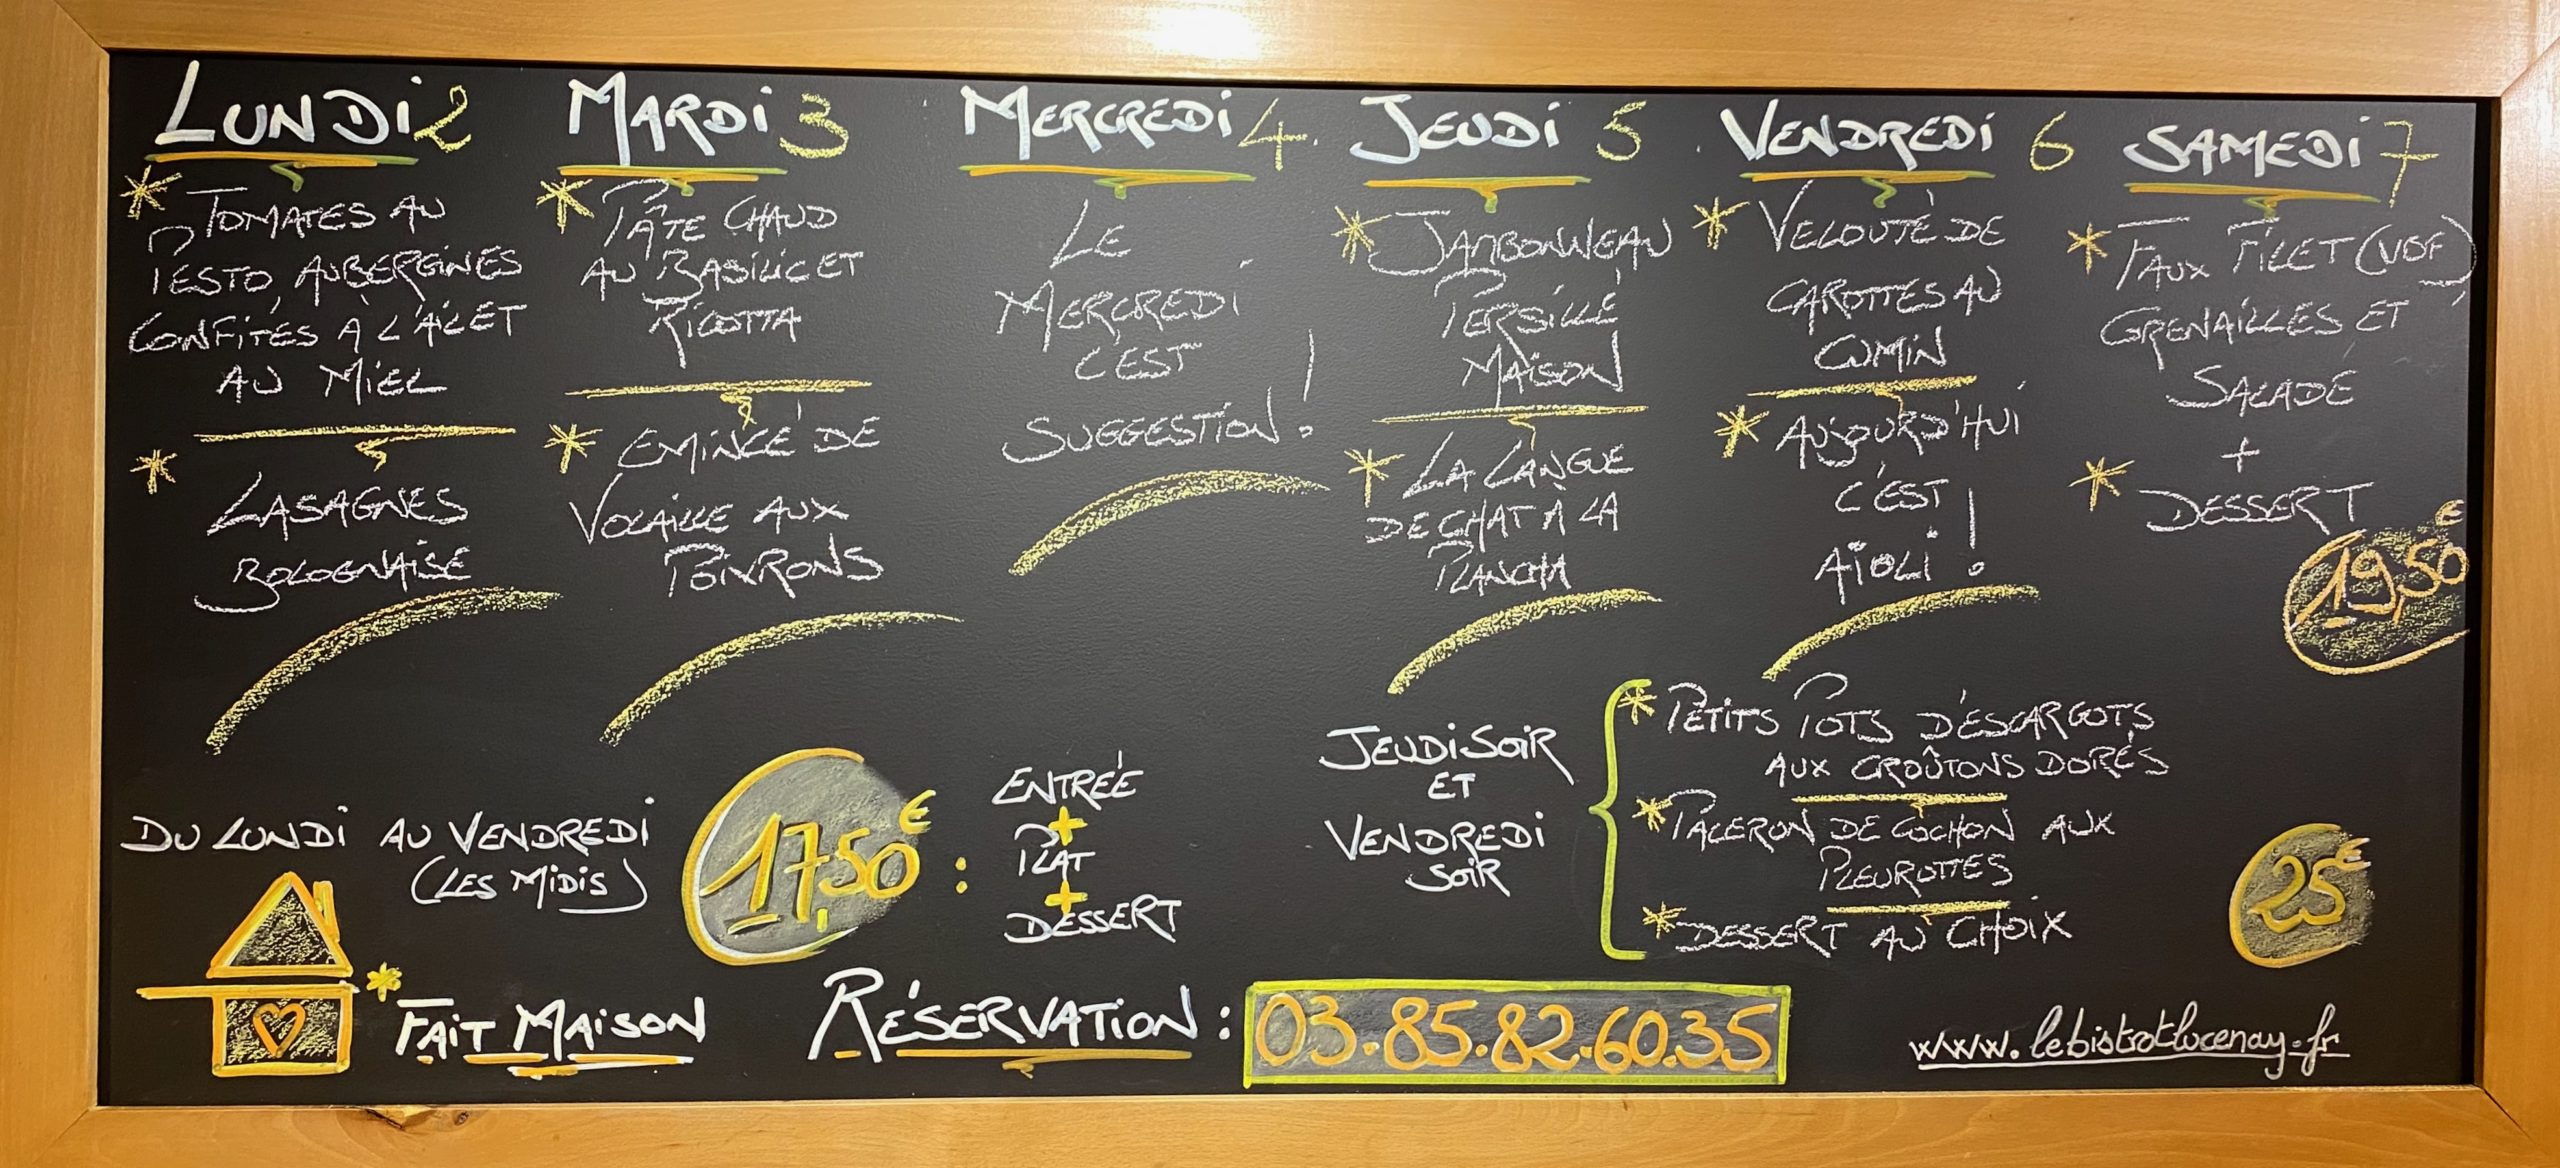 LUNDI 2
* TOMATES AU
PESTO, AUBERGINES
CONFITES À L'AIL ET
AU MIEL
* LASAGNES
BOLOGNAISE
MARDI 3
* PÂTÉ CHAUD
AU BASILIC ET
RICOTTA
* EMINCÉ DE
VOLAILLE AUX
POIVRONS
MERCREDI 4.
LE
MERCREDI
C'EST
SUGGESTION!
JEUDI 5
* JAMBONNEAU
PERSILLÉ
MAISON
* LA LANGUE
DE CHAT À LA
PLANCHA
. VENDREDI 6
* VELOUTÉ DE
CAROTTES AU
CUMIN
* AUJOURD'HUI
C'EST
AÏOLI!
SAMEDI 7
* FAUX FILET (VDF)
GRENAILLES ET
SALADE
+
* DESSERT
19,50€
DU LUNDI AU VENDREDI
(LES MIDIS)
17,50€ :
ENTRÉE
+
PLAT
+
DESSERT
JEUDI SOIR
ET
VENDREDI
SOIR
* PETITS POTS D'ESCARGOTS
AUX CROÛTONS DORÉS
* PALERON DE COCHON AUX
PLEUROTTES
* DESSERT AU CHOIX
25€
* FAIT MAISON
RÉSERVATION : 03.85.82.60.35
www.lebistrotlucenay.fr